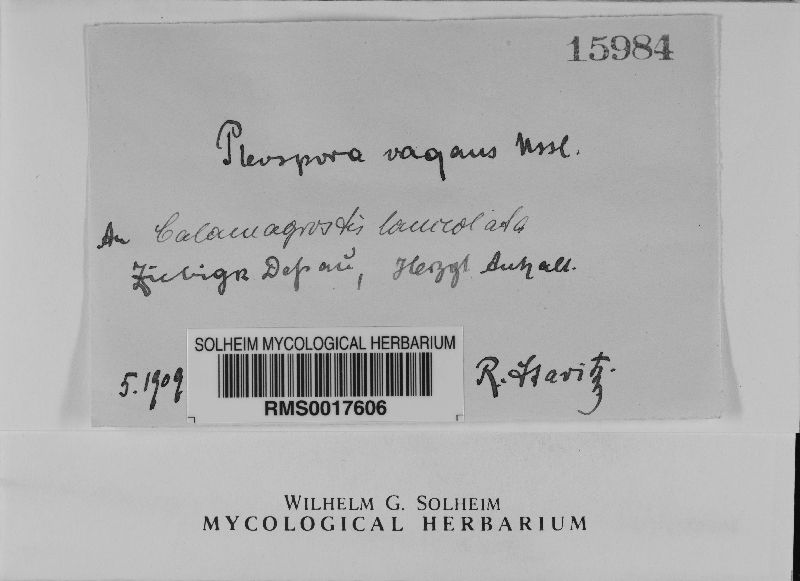 15984
Pleospora vagans Nssl.
An Calamagrostis lanceolata
Ziebigk Deßau, Herzgt Anhalt.
5.1909
SOLHEIM MYCOLOGICAL HERBARIUM
RMS0017606
R. Staritz.
WILHELM G. SOLHEIM
MYCOLOGICAL HERBARIUM